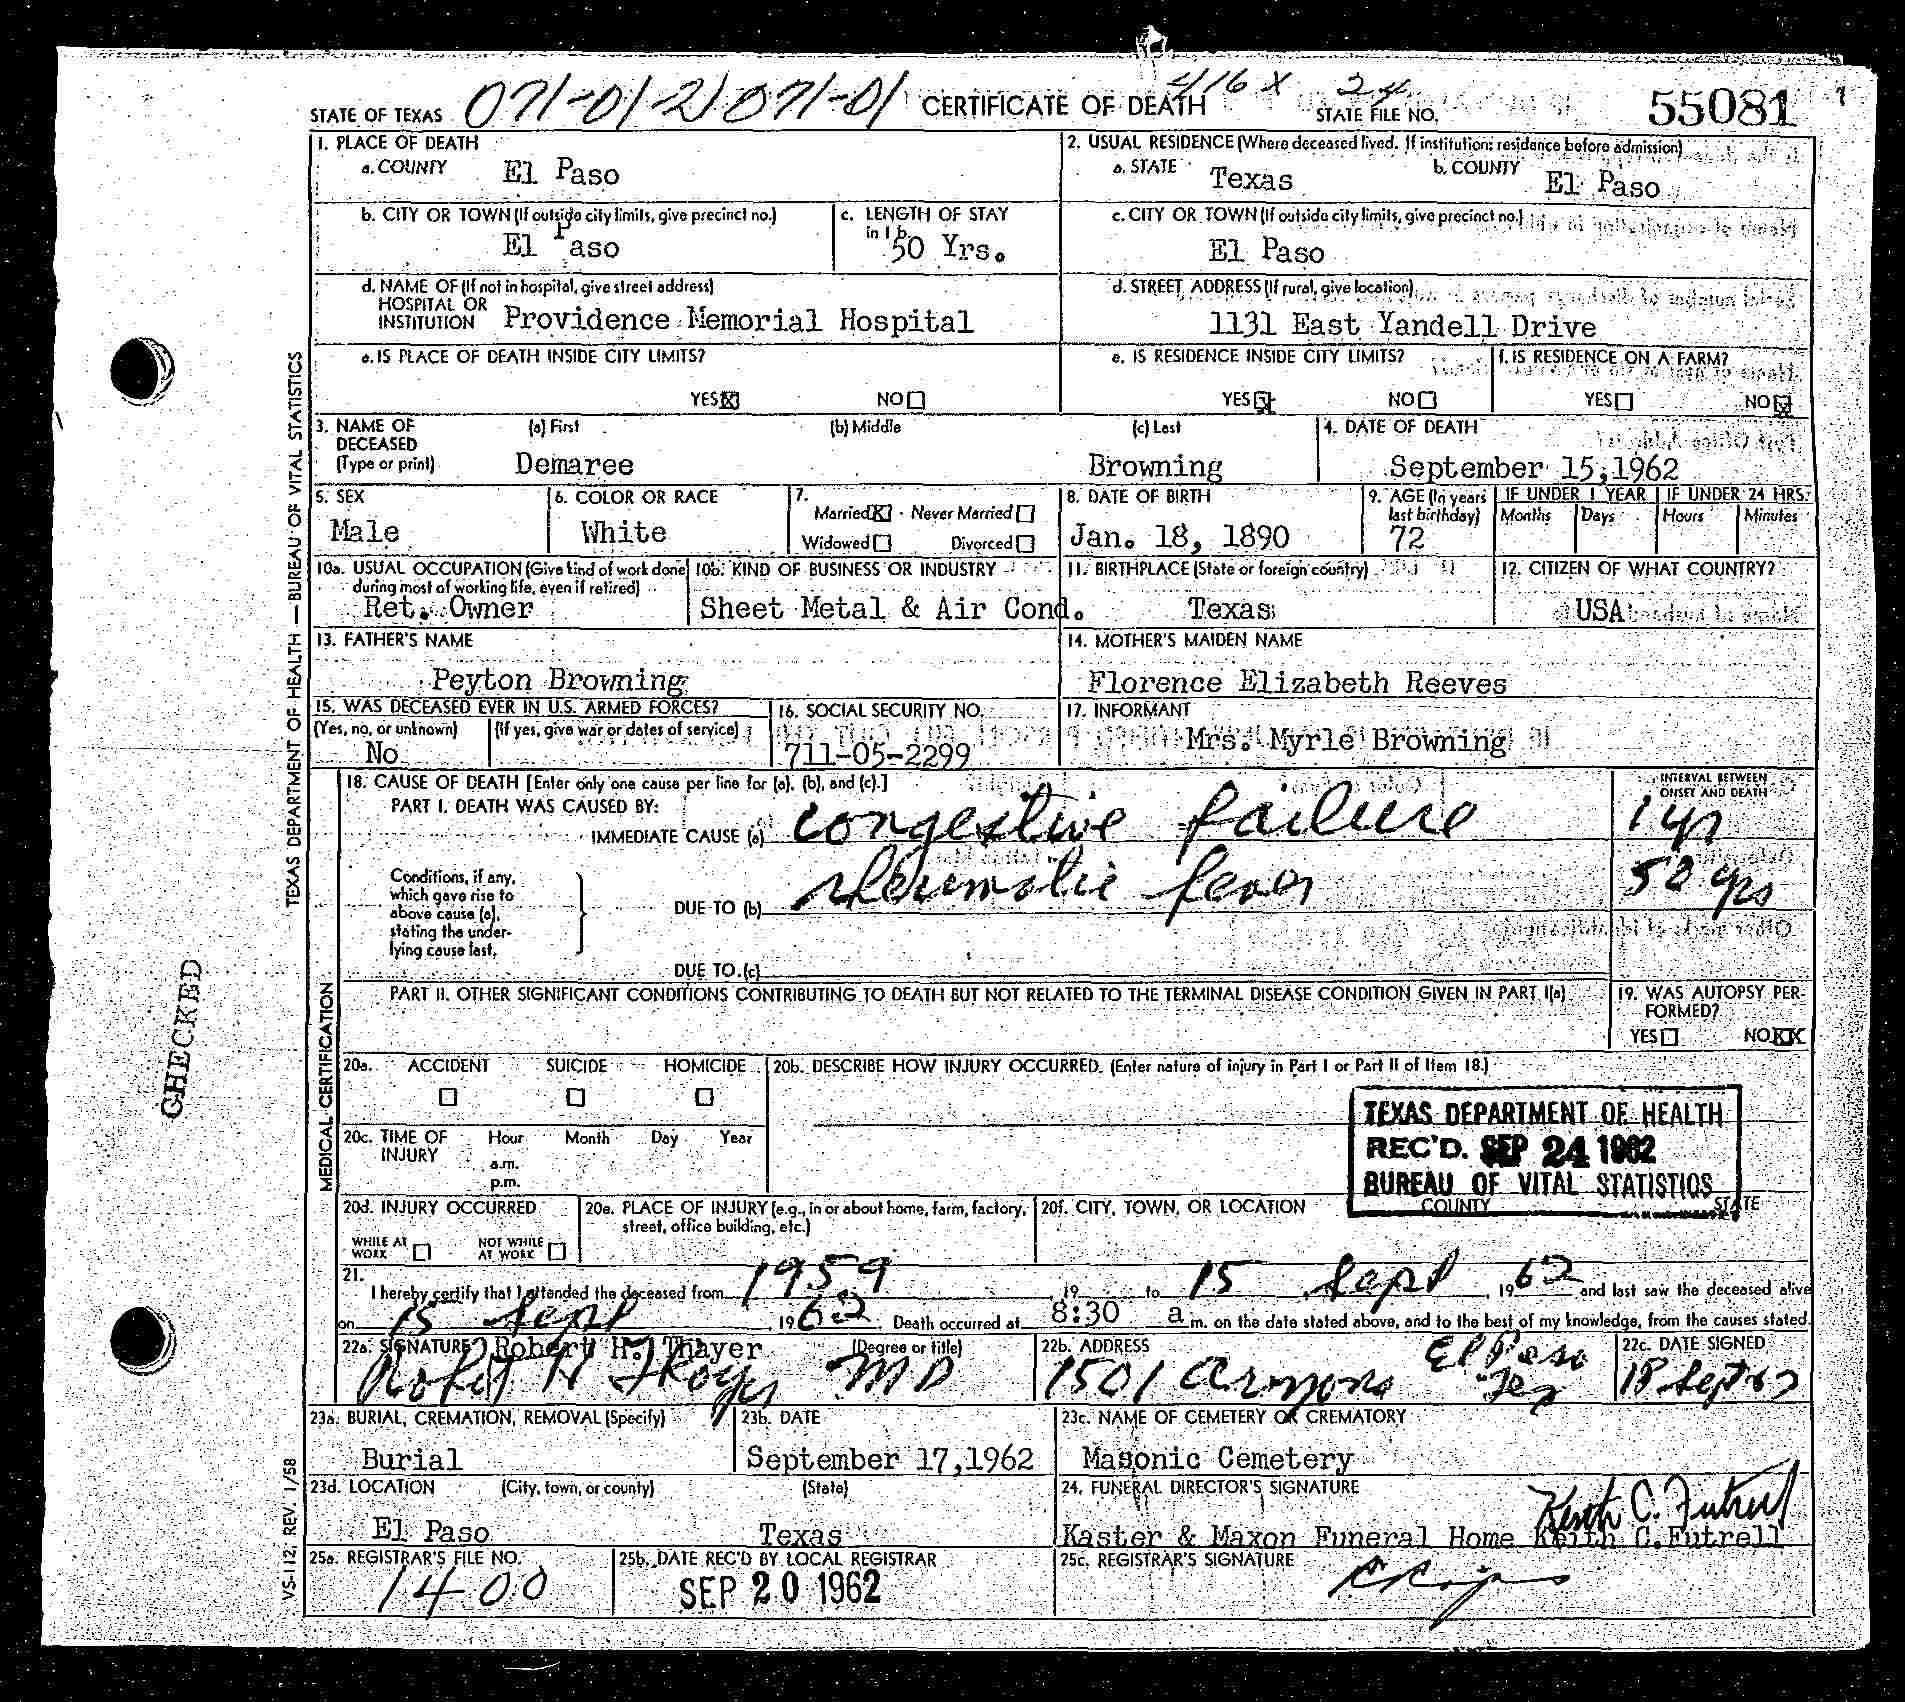 STATE OF TEXAS 071-01 2) 071-01 CERTIFICATE OF DEATH 416 X 24 STATE FILE NO. 55081 1
1. PLACE OF DEATH
a. COUNTY El Paso
2. USUAL RESIDENCE (Where deceased lived. If institution: residence before admission)
a. STATE Texas b. COUNTY El Paso
b. CITY OR TOWN (If outside city limits, give precinct no.) El Paso
c. LENGTH OF STAY in 1 b. 50 Yrs.
c. CITY OR TOWN (If outside city limits, give precinct no.) El Paso
d. NAME OF (If not in hospital, give street address) HOSPITAL OR INSTITUTION Providence Memorial Hospital
d. STREET ADDRESS (If rural, give location) 1131 East Yandell Drive
e. IS PLACE OF DEATH INSIDE CITY LIMITS? YES☒ NO☐
e. IS RESIDENCE INSIDE CITY LIMITS? YES☒ NO☐
f. IS RESIDENCE ON A FARM? YES☐ NO☒
3. NAME OF DECEASED (Type or print) (a) First Demaree (b) Middle (c) Last Browning
4. DATE OF DEATH September 15,1962
5. SEX Male
6. COLOR OR RACE White
7. Married☒ Never Married☐ Widowed☐ Divorced☐
8. DATE OF BIRTH Jan. 18, 1890
9. AGE (In years last birthday) 72
IF UNDER 1 YEAR Months Days
IF UNDER 24 HRS. Hours Minutes
10a. USUAL OCCUPATION (Give kind of work done during most of working life, even if retired) Ret. Owner
10b. KIND OF BUSINESS OR INDUSTRY Sheet Metal & Air Cond.
11. BIRTHPLACE (State or foreign country) Texas
12. CITIZEN OF WHAT COUNTRY? USA
13. FATHER'S NAME Peyton Browning
14. MOTHER'S MAIDEN NAME Florence Elizabeth Reeves
15. WAS DECEASED EVER IN U.S. ARMED FORCES? (Yes, no, or unknown) No (If yes, give war or dates of service)
16. SOCIAL SECURITY NO. 711-05-2299
17. INFORMANT Mrs. Myrle Browning
18. CAUSE OF DEATH [Enter only one cause per line for (a), (b), and (c).]
PART I. DEATH WAS CAUSED BY:
IMMEDIATE CAUSE (a) congestive failure
INTERVAL BETWEEN ONSET AND DEATH 1 yr
Conditions, if any, which gave rise to above cause (a), stating the underlying cause last.
DUE TO (b) rheumatic fever 50 yrs
DUE TO (c)
PART II. OTHER SIGNIFICANT CONDITIONS CONTRIBUTING TO DEATH BUT NOT RELATED TO THE TERMINAL DISEASE CONDITION GIVEN IN PART I(a)
19. WAS AUTOPSY PERFORMED? YES☐ NO☒
20a. ACCIDENT ☐ SUICIDE ☐ HOMICIDE ☐
20b. DESCRIBE HOW INJURY OCCURRED. (Enter nature of injury in Part I or Part II of Item 18.)
20c. TIME OF INJURY Hour a.m. p.m. Month Day Year
TEXAS DEPARTMENT OF HEALTH
REC'D. SEP 24 1962
BUREAU OF VITAL STATISTICS
20d. INJURY OCCURRED WHILE AT WORK ☐ NOT WHILE AT WORK ☐
20e. PLACE OF INJURY (e.g., in or about home, farm, factory, street, office building, etc.)
20f. CITY, TOWN, OR LOCATION COUNTY STATE
21. I hereby certify that I attended the deceased from 1959 19 to 15 Sept, 1962 and last saw the deceased alive
on 15 Sept, 1962. Death occurred at 8:30 a m. on the date stated above, and to the best of my knowledge, from the causes stated.
22a. SIGNATURE Robert H. Thayer (Degree or title)
Robert H Thayer MD
22b. ADDRESS 1501 Arizona El Paso Tex
22c. DATE SIGNED 18 Sept 62
23a. BURIAL, CREMATION, REMOVAL (Specify) Burial
23b. DATE September 17,1962
23c. NAME OF CEMETERY OR CREMATORY Masonic Cemetery
23d. LOCATION (City, town, or county) El Paso (State) Texas
24. FUNERAL DIRECTOR'S SIGNATURE Keith C. Futrell
Kaster & Maxon Funeral Home Keith C.Futrell
25a. REGISTRAR'S FILE NO. 1400
25b. DATE REC'D BY LOCAL REGISTRAR SEP 20 1962
25c. REGISTRAR'S SIGNATURE
TEXAS DEPARTMENT OF HEALTH — BUREAU OF VITAL STATISTICS
MEDICAL CERTIFICATION
VS-112, REV. 1/58
CHECKED